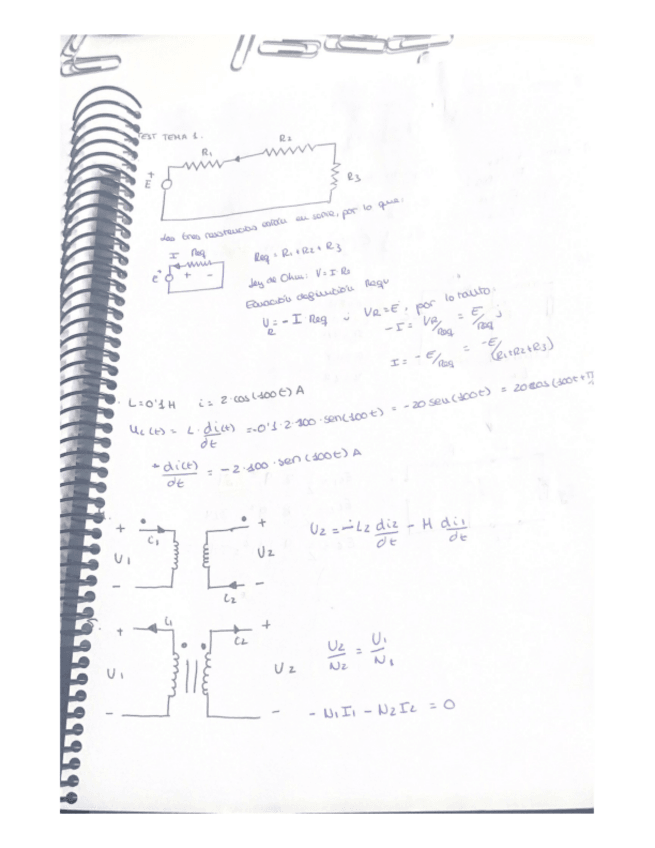 TEST TEMA 1.
R1
R2
R3
+
E
Las tres resistencias están en serie, por lo que:
I Req
+ -
E
+
Req = R1+R2+R3
Ley de Ohm: V = I R
Ecuación
U_R = - I Req
VR = E, por lo tanto:
-I = VR/Req = E/Req ;
I = -E/Req = -E/(R1+R2+R3)
L=0'1H i= 2·cos(100t) A
UL(t) = L·di(t)/dt = -0'1·2·100·sen(100t) = -20 sen(100t) = 20cos(100t+
* di(t)/dt = -2·100·sen(100t) A
+ +
i1
U1 U2
- -
i2
U2 = -L2 di2/dt - M di1/dt
+ i1 i2 +
U1 U2
- -
U2/N2 = U1/N1
- N1I1 - N2I2 = 0